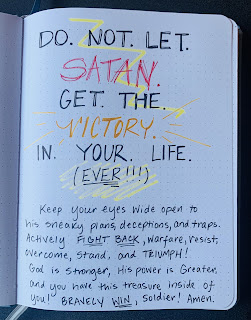 DO. NOT. LET.
SATAN.
GET. THE.
VICTORY.
IN. YOUR. LIFE.
(EVER!!!)
Keep your eyes wide open to
his sneaky plans, deceptions, and traps.
Actively FIGHT BACK, warfare, resist,
overcome, stand, and TRIUMPH!
God is stronger, His power is Greater,
and you have this treasure inside of
you! BRAVELY WIN, soldier! Amen.